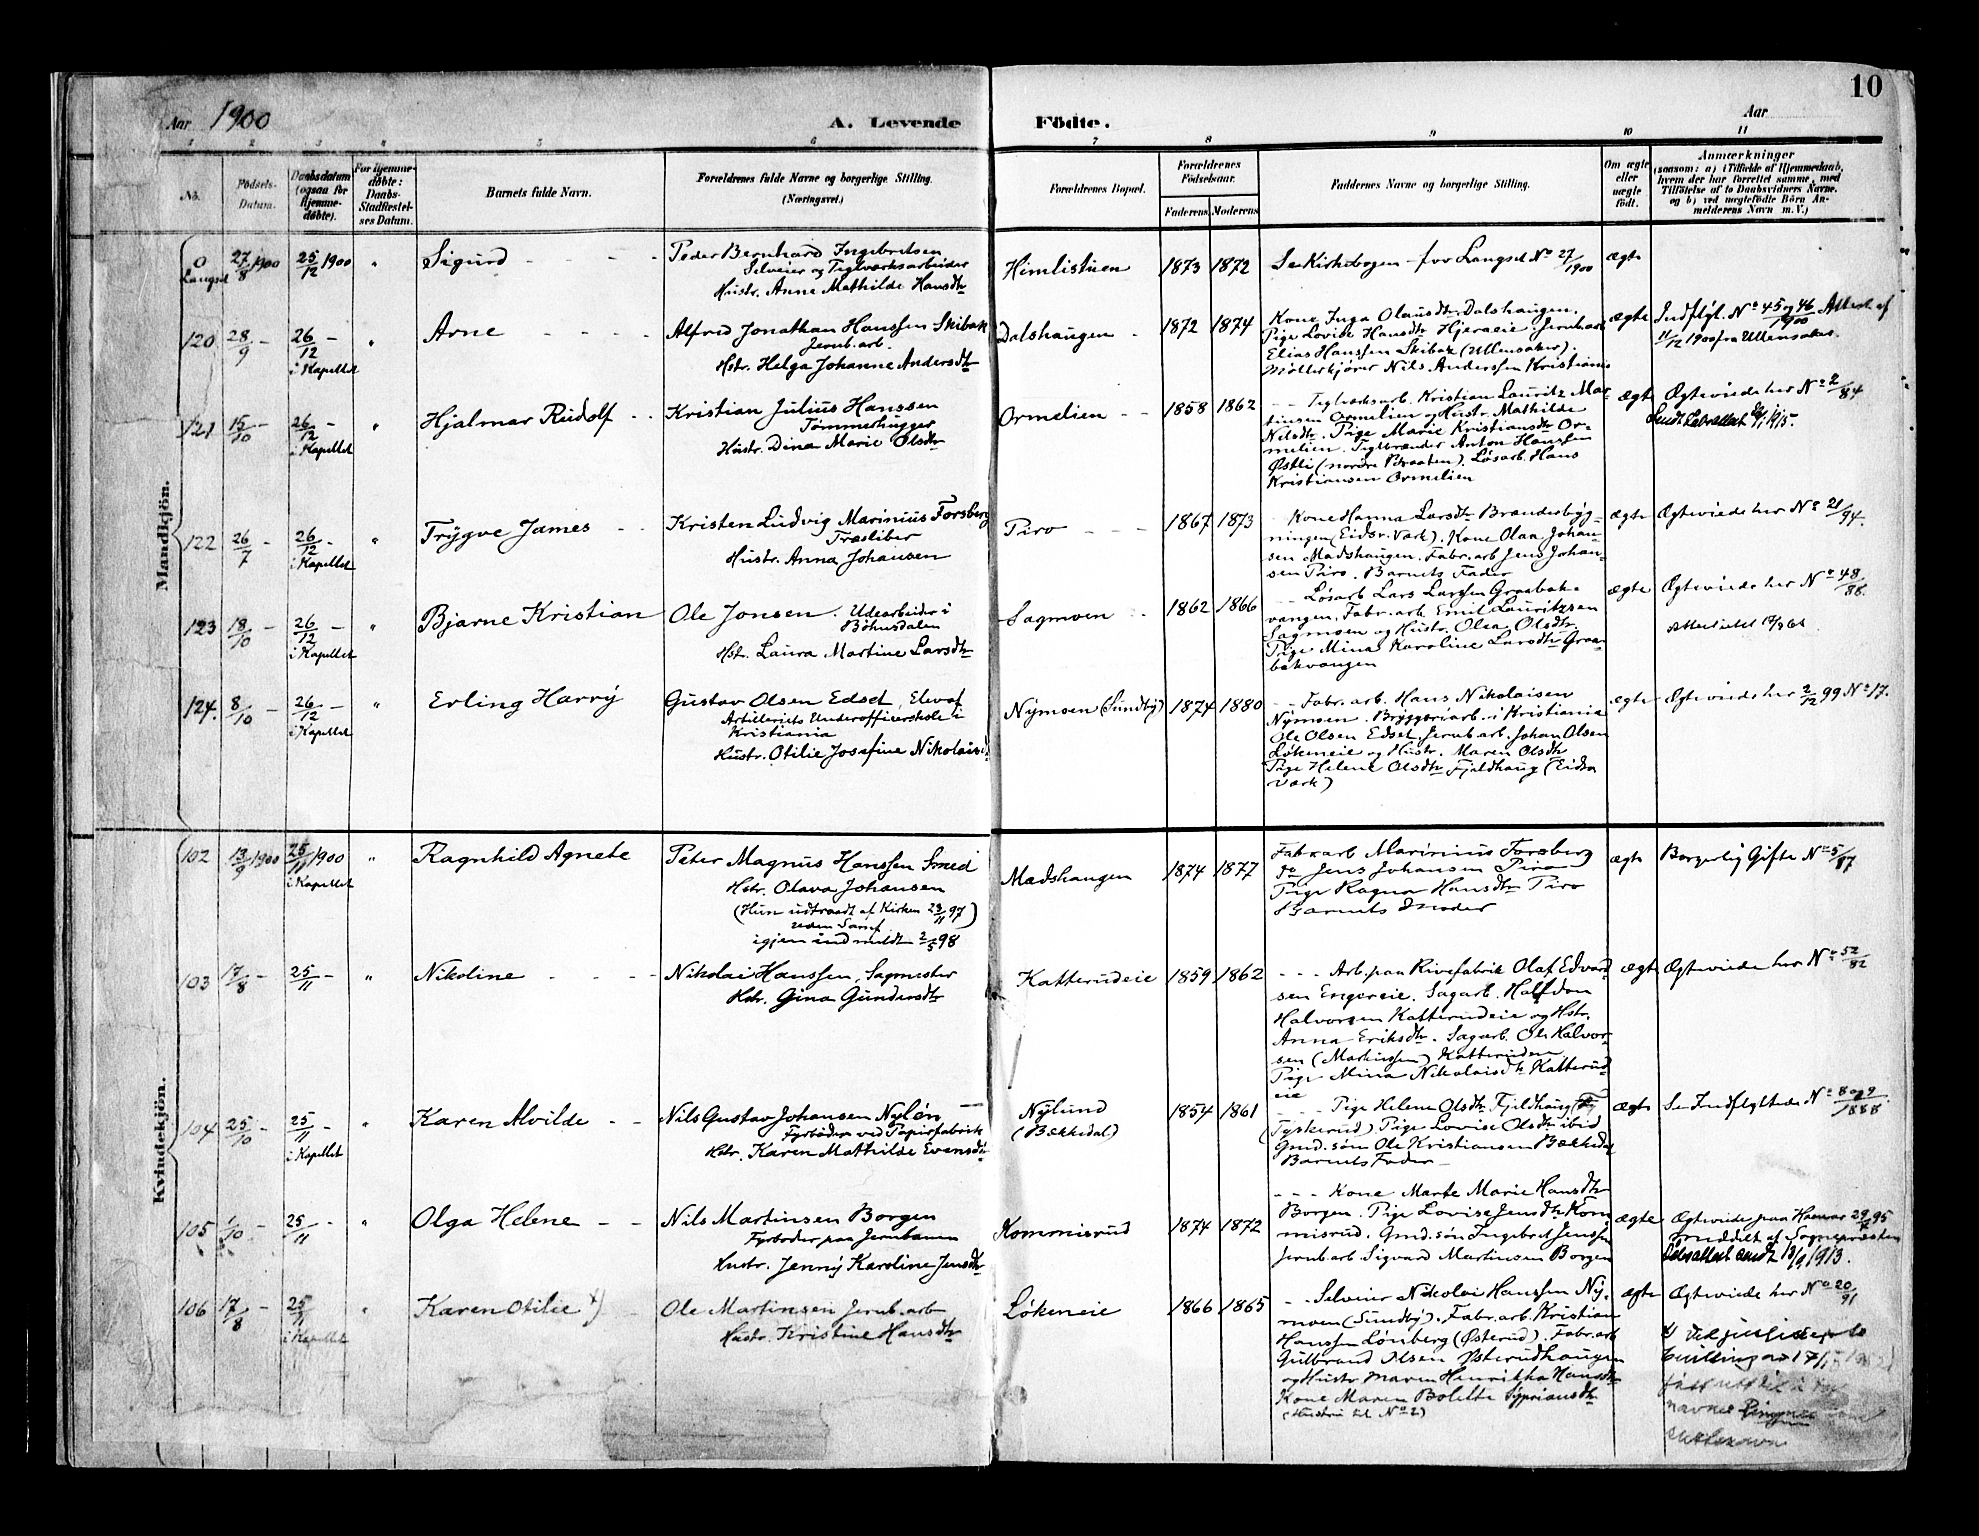 10
Aar 1900
A. Levende
Födte.
Aar
1 2 3 4 5 6 7 8 9 10 11
No.
Födsels-
Datum.
Daabsdatum
(ogsaa for
Hjemme-
döbte).
For Hjemme-
döbte:
Daabs-
Stadfæstel-
ses Datum.
Barnets fulde Navn.
Forældrenes fulde Navne og borgerlige Stilling.
(Næringsvei.)
Forældrenes Bopæl.
Forældrenes
Födselsaar.
Faderens Moderens
Faddernes Navne og borgerlige Stilling.
Om ægte
eller
uægte
födt.
Anmærkninger
(saasom: a) i Tilfælde af Hjemmedaab,
hvem der har forrettet samme, med
Tilföielse af to Daabsvidners Navne.
og b) ved uægtefödte Börn An-
melderens Navn m. V.)
Mandkjön.
0
Langset
27/8 1900
25/12 1900
"
Sigurd
Peder Bernhard Ingebretsen
Selveier og Teglværksarbeider
Hustr. Anne Mathilde Hansdtr
Himlistuen
1873 1872
Se Kirkebogen for Langset No 27/1900
ægte
120
28/9 -
26/12 -
i Kapellet
"
Arne
Alfred Jonathan Hanssen Skibak
Jernb.arb.
Hstr. Helga Johanne Andersdtr
Dalshaugen
1872 1874
Kone Inga Olausdtr Dalshaugen.
Pige Lovise Hansdtr Hjeraeie Jernbarb
Elias Hanssen Skibak (Ullensaker).
Møllerkjører Nils Anderssen Kristiania
ægte
Indflyt. No 45 og 46/1900 Attest af
11/12 1900 fra Ullensaker.
121
15/10 -
26/12 -
i Kapellet
"
Hjalmar Rudolf
Kristian Julius Hanssen
Tømmerhugger
Hustr. Dina Marie Olsdtr
Ormelien
1858 1862
Teglværksarb. Kristian Lauritz Mar-
tinsen Ormelien og Hustr. Mathilde
Nilsdtr. Pige Marie Kristiansdtr Or-
melien. Teglbrænder Anton Hanssen
Østli (nordre Braaten). Løsarb. Hans
Kristiansen Ormelien
ægte
Ægteviede her No 2/84
122
26/7 -
26/12 -
i Kapellet
"
Trygve James
Kristen Ludvig Marinius Forsberg
Træsliber
Hustr. Anna Johansen
Piro
1867 1873
Kone Hanna Larsdtr Brandersbyg-
ningen (Eidsv. Værk). Kone Olaa Johan-
sen Madshaugen. Fabr. arb Jens Johan-
sen Piro. Barnets Fader
ægte
Ægteviede her No 21/94.
123
18/10 -
26/12 -
i Kapellet
"
Bjarne Kristian
Ole Jonsen. Udearbeider i
Bøhnsdalen
Hst. Laura Martine Larsdtr
Sagmoen
1862 1866
Løsarb Lars Larssen Graabak-
vangen. Fabr. arb Emil Lauritzsen
Sagmoen og Hustr. Olea Olsdtr.
Pige Mina Karoline Larsdtr Graa-
bakvangen
ægte
Ægteviede her No 48/88.
124.
8/10 -
26/12 -
i Kapellet
"
Erling Harry
Gustav Olsen Edset, Elev af
Artilleriets Underofficerskole i
Kristiania
Hustr. Otilie Josefine Nikolais
Nymoen (Sundby)
1874 1880
Fabr. arb. Hans Nikolaisen
Nymoen. Bryggeriarb. i Kristiania
Ole Olsen Edset. Jernb arb. Johan Olsen
Løkeneie og Hustr. Maren Olsdtr
Pige Helene Olsdtr Fjeldhaug (Eidsv
Værk)
ægte
Ægteviede her 2/12 99 No 17.
Kvindekjön.
102
13/9 1900
25/11 1900
i Kapellet
"
Ragnhild Agnete
Peter Magnus Hanssen Smed
Hstr. Olava Johansen
(Hun udtraadt af Kirken 23/11 97)
igjen indmeldt 2/5 98
Madshaugen
1874 1877
Fabr arb Marinius Forsberg
Do Jens Johansen Piro
Pige Ragna Hansdtr Piro
Barnets Moder
ægte
Borgerlig Gifte No 5/97
103
17/8 -
25/11 -
"
Nikoline
Nikolai Hanssen, Sagmester
Hstr. Gina Gundersdtr
Katterudeie
1859 1862
Arb. paa Rivefabrik Olaf Edvard-
sen Engereie. Sagarb. Halfdan
Halvorsen Katterudeie og Hstr.
Anna Eriksdtr. Sagarb. Ole Halvor-
sen (Martinssen) Katteruden.
Pige Mina Nikolaisdtr Katterud-
eie
ægte
Ægteviede her No 52/82
104
25/10 -
25/11 -
i Kapellet
"
Karen Alvilde
Nils Gustav Johansen Nylén
Fyrbøder ved Papirfabrik
Hstr. Karen Mathilde Evensdtr
Nylund
(Bækkedal)
1854 1861
Pige Helene Olsdtr Fjeldhaug
(Tyskerud) Pige Lovise Olsdtr ibid
Gmd. søn Ole Kristiansen Bækkedal
Barnets Fader
ægte
Se Indflyttede No 8 og 9/1888.
105
1/10 -
25/11 -
"
Olga Helene
Nils Martinsen Borgen
Fyrbøder paa Jernbanen
Hustr. Jenny Karoline Jensdtr
Kommisrud
1874 1872
Kone Marte Marie Hansdtr
Borgen. Pige Lovise Jensdtr Kom
misrud. Gmd. søn Ingebret Jenssen
Jernb arb Sigvard Martinsen Borgen
ægte
Ægteviede paa Hamar
meddelt af Sognepræsten
106
17/8 -
25/11 -
i Kapellet
"
Karen Otilie x)
Ole Martinsen Jernb. arb
Hustr. Kristine Hansdtr
Løkeneie
1866 1865
Selveier Nikolai Hanssen Ny-
moen (Sundby). Fabr. arb. Kristian
Hanssen Lønberg (Østerud). Fabr. arb
Gulbrand Olsen Østerudhaugen
og Hustr Maren Henrikka Hansdtr
Kone Maren Bolette Sypriansdtr
(Hustru til No 2)
ægte
Ægteviede her No 20/91